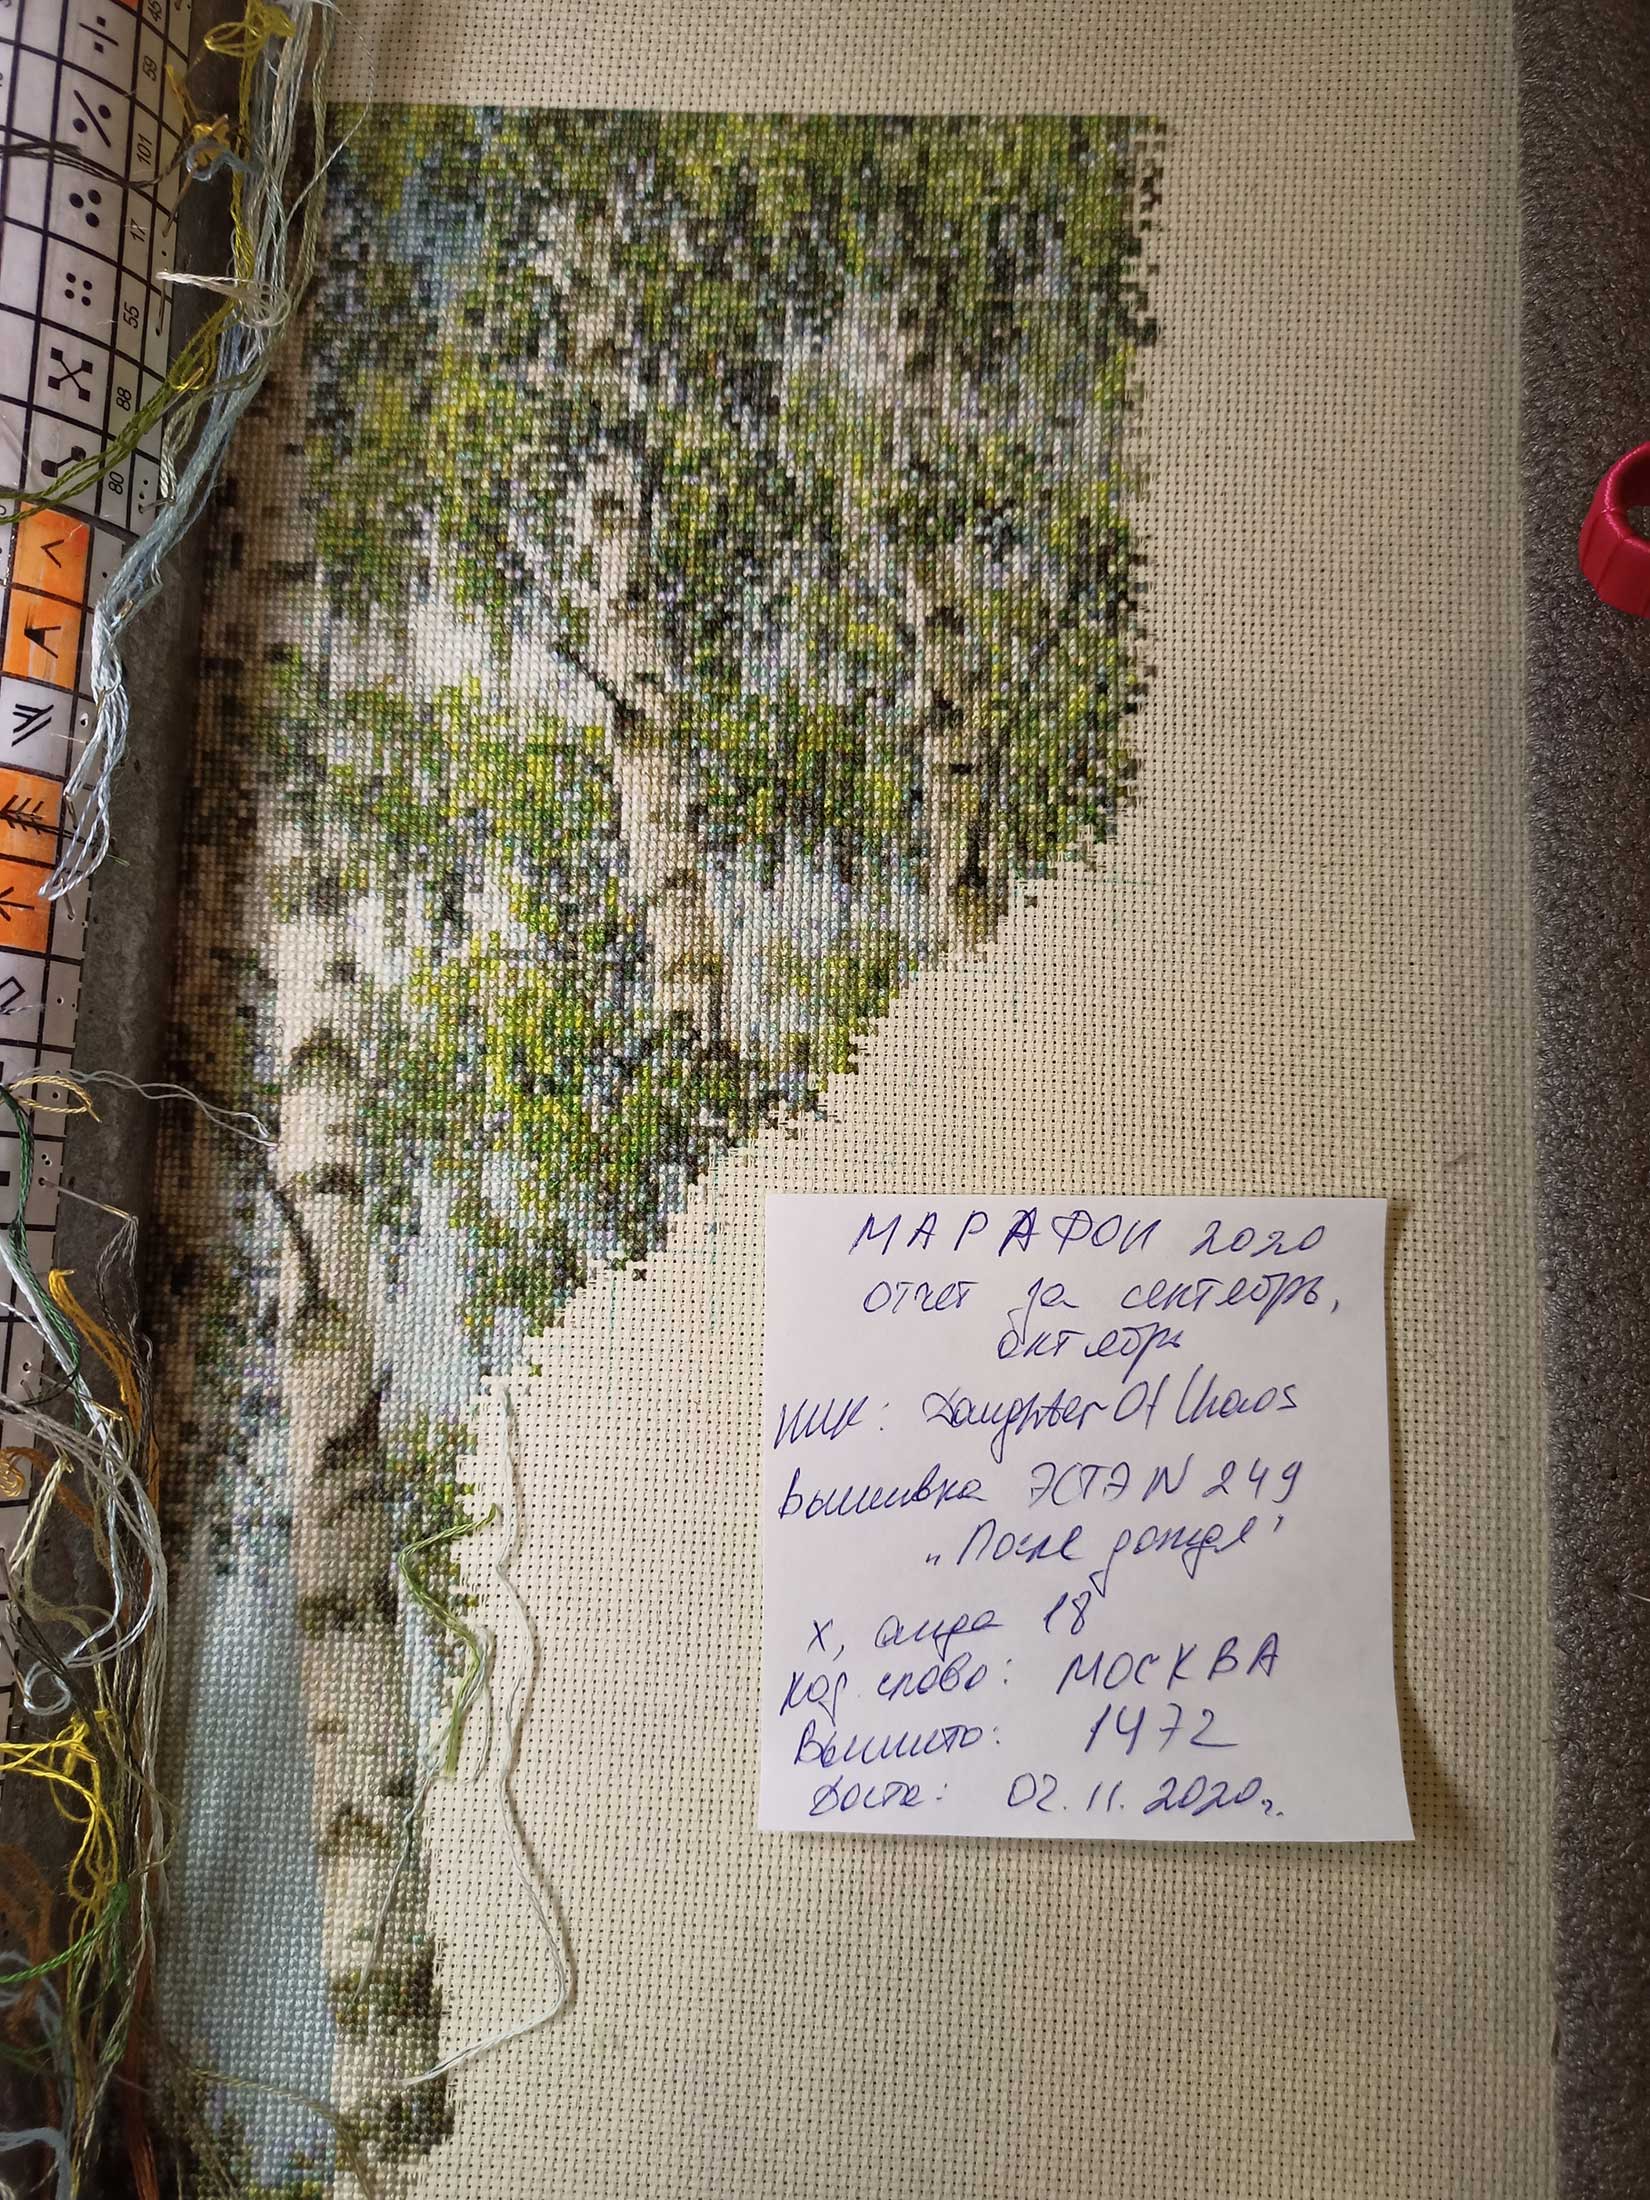 45
59
101
17
55
88
80
МАРАФОН 2020
отчет за сентябрь,
октябрь
ник: Daughter Of Chaos
Вышивка ЭСТЭ N 249
„После дождя"
х, аида 18
код. слово: МОСКВА
Вышито: 1472
Дата: 02.11.2020г.